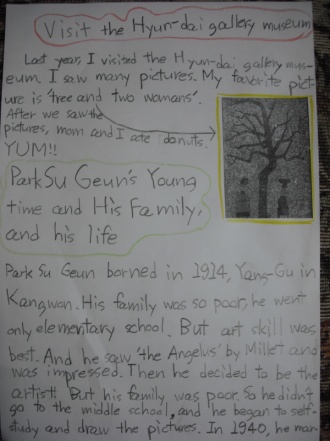 Visit the Hyun-dai gallery museum
Last year, I visited the Hyun-dai gallery mus-
eum. I saw many pictures. My favorite pict-
ure is 'tree and two womans'.
After we saw the
pictures, mom and I ate donuts.
YUM!!
Park Su Geun's Young
time and His Family,
and his life
Park Su Geun borned in 1914, Yang-Gu in
Kangwan. His family was so poor, he went
only elementary school. But art skill was
best. And he saw 'the Angelus' by Millet and
was impressed. Then he decided to be the
artist. But his family was poor. So he didn't
go to the middle school, and he began to self-
study and draw the pictures. In 1940, he mar-